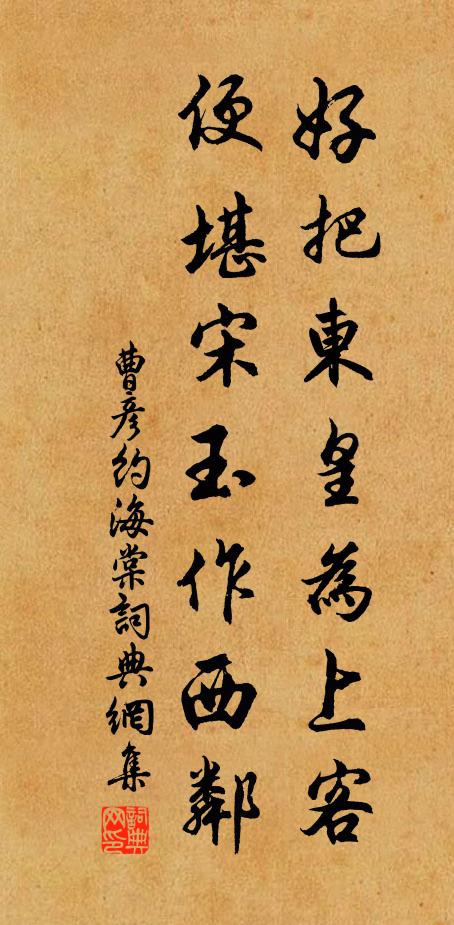 好把東皇為上客
便堪宋玉作西鄰
曹彥約海棠詞典網集
詞典
网印